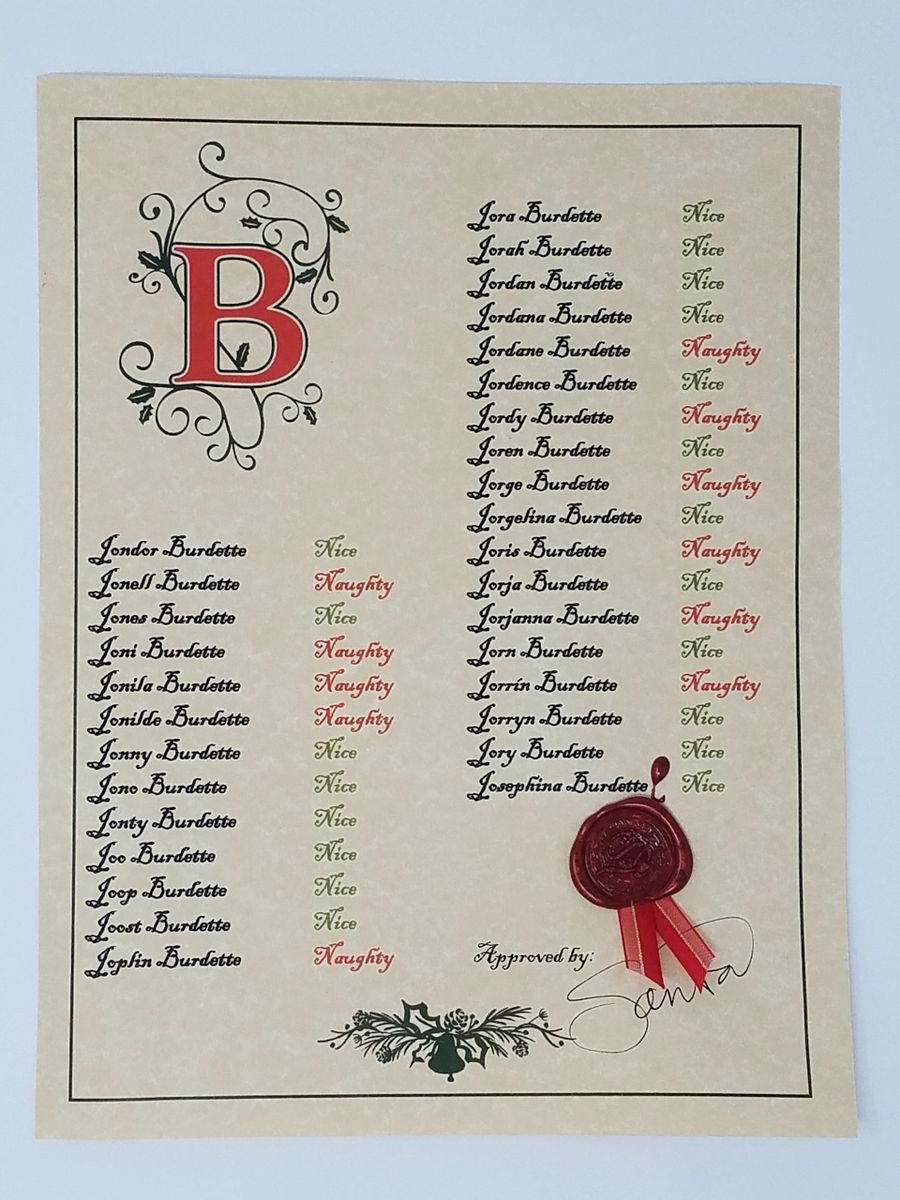 B
Jondor Burdette Nice
Jonell Burdette Naughty
Jones Burdette Nice
Joni Burdette Naughty
Jonila Burdette Naughty
Jonilde Burdette Naughty
Jonny Burdette Nice
Jono Burdette Nice
Jonty Burdette Nice
Joo Burdette Nice
Joop Burdette Nice
Joost Burdette Nice
Joplin Burdette Naughty
Jora Burdette Nice
Jorah Burdette Nice
Jordan Burdette Nice
Jordana Burdette Nice
Jordane Burdette Naughty
Jordence Burdette Nice
Jordy Burdette Naughty
Joren Burdette Nice
Jorge Burdette Naughty
Jorgelina Burdette Nice
Joris Burdette Naughty
Jorja Burdette Nice
Jorjanna Burdette Naughty
Jorn Burdette Nice
Jorrín Burdette Naughty
Jorryn Burdette Nice
Jory Burdette Nice
Josephina Burdette Nice
Approved by: Santa